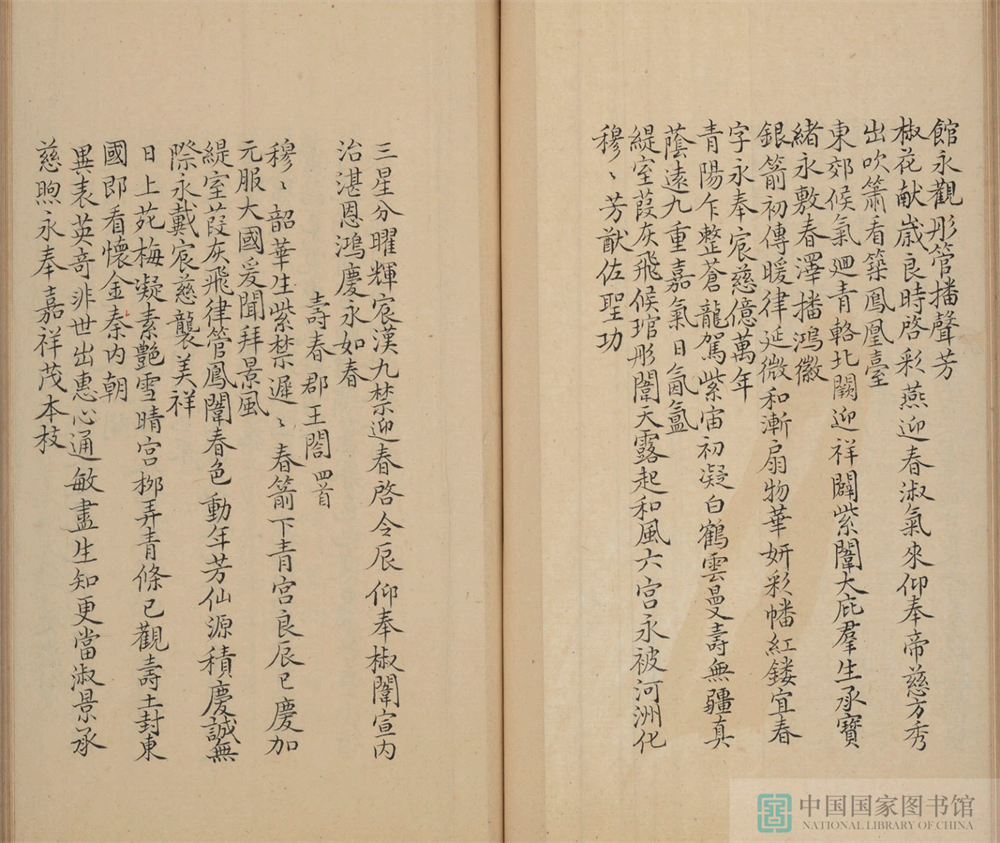 館永觀彤管播聲芳
椒花献歲良時啓彩燕迎春淑氣來仰奉帝慈方秀
出吹簫看築鳳凰臺
東郊候氣廻青輅北闕迎祥闢紫闈大庇羣生承寶
緒永敷春澤播鴻徽
銀箭初傳暖律延微和漸扇物華妍彩幡紅鏤宜春
字永奉宸慈億萬年
青陽乍整蒼龍駕紫宙初凝白鶴雲曼壽無疆真
蔭遠九重嘉氣日氤氳
緹室葭灰飛候琯彤闈天露起和風六宮永被河洲化
穆〻芳猷佐聖功
三星分曜輝宸漢九禁迎春啓令辰仰奉椒闈宣内
治湛恩鴻慶永如春
壽春郡王閤四首
穆〻韶華生紫禁遲〻春箭下青宮良辰已慶加
元服大國爰聞拜景風
緹室葭灰飛律管鳳闈春色動年芳仙源積慶誠無
際永戴宸慈襲美祥
日上苑梅凝素艷雪晴宮栁弄青條已觀壽土封東
國即看懷金奏内朝
異表英奇非世出惠心通敏盡生知更當淑景承
慈煦永奉嘉祥茂本枝
中国国家图书馆
NATIONAL LIBRARY OF CHINA